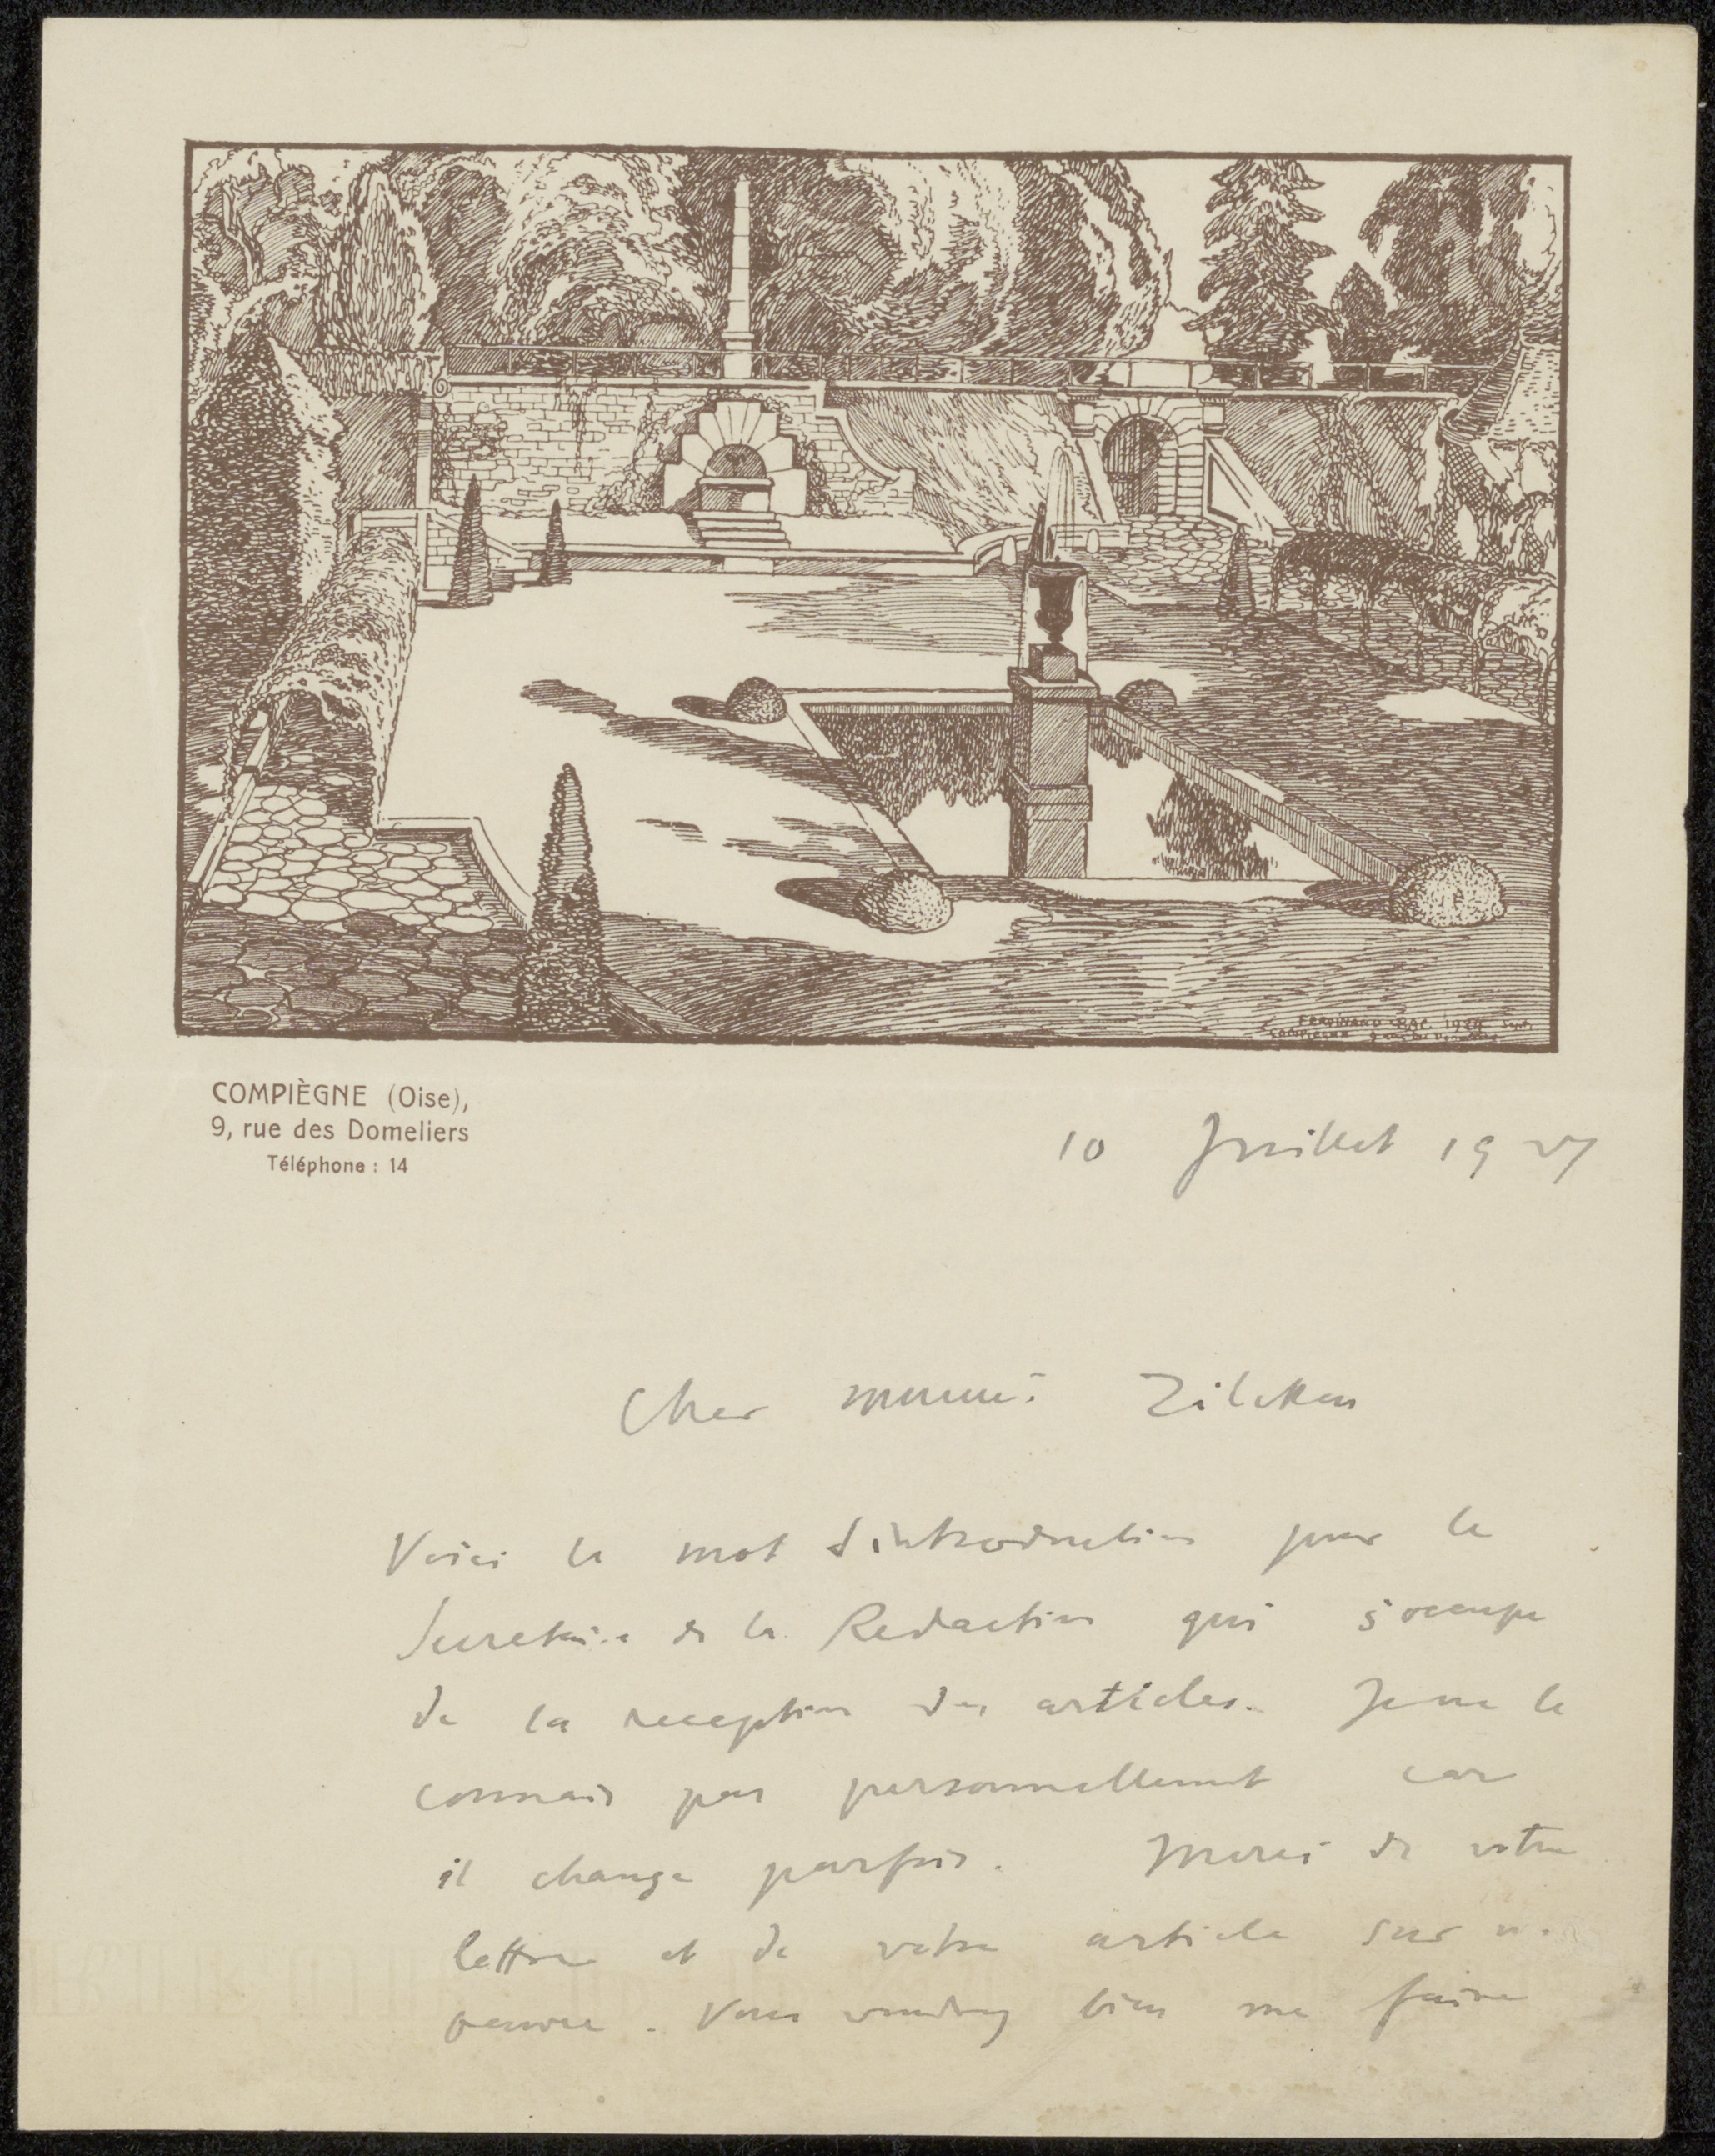 FERDINAND BAC. 1924
COMPIEGNE 9 rue des Domeliers
COMPIÈGNE (Oise),
9, rue des Domeliers
Téléphone : 14
10 Juillet 1927
Cher Zilcken
Voici le mot d'introduction pour le
Secretaire de la Redaction qui s'occupe
de la reception des articles. Je ne le
connais pas personnellement car
il change parfois. Merci de votre
lettre et de votre article sur
Vous voudrez bien me faire